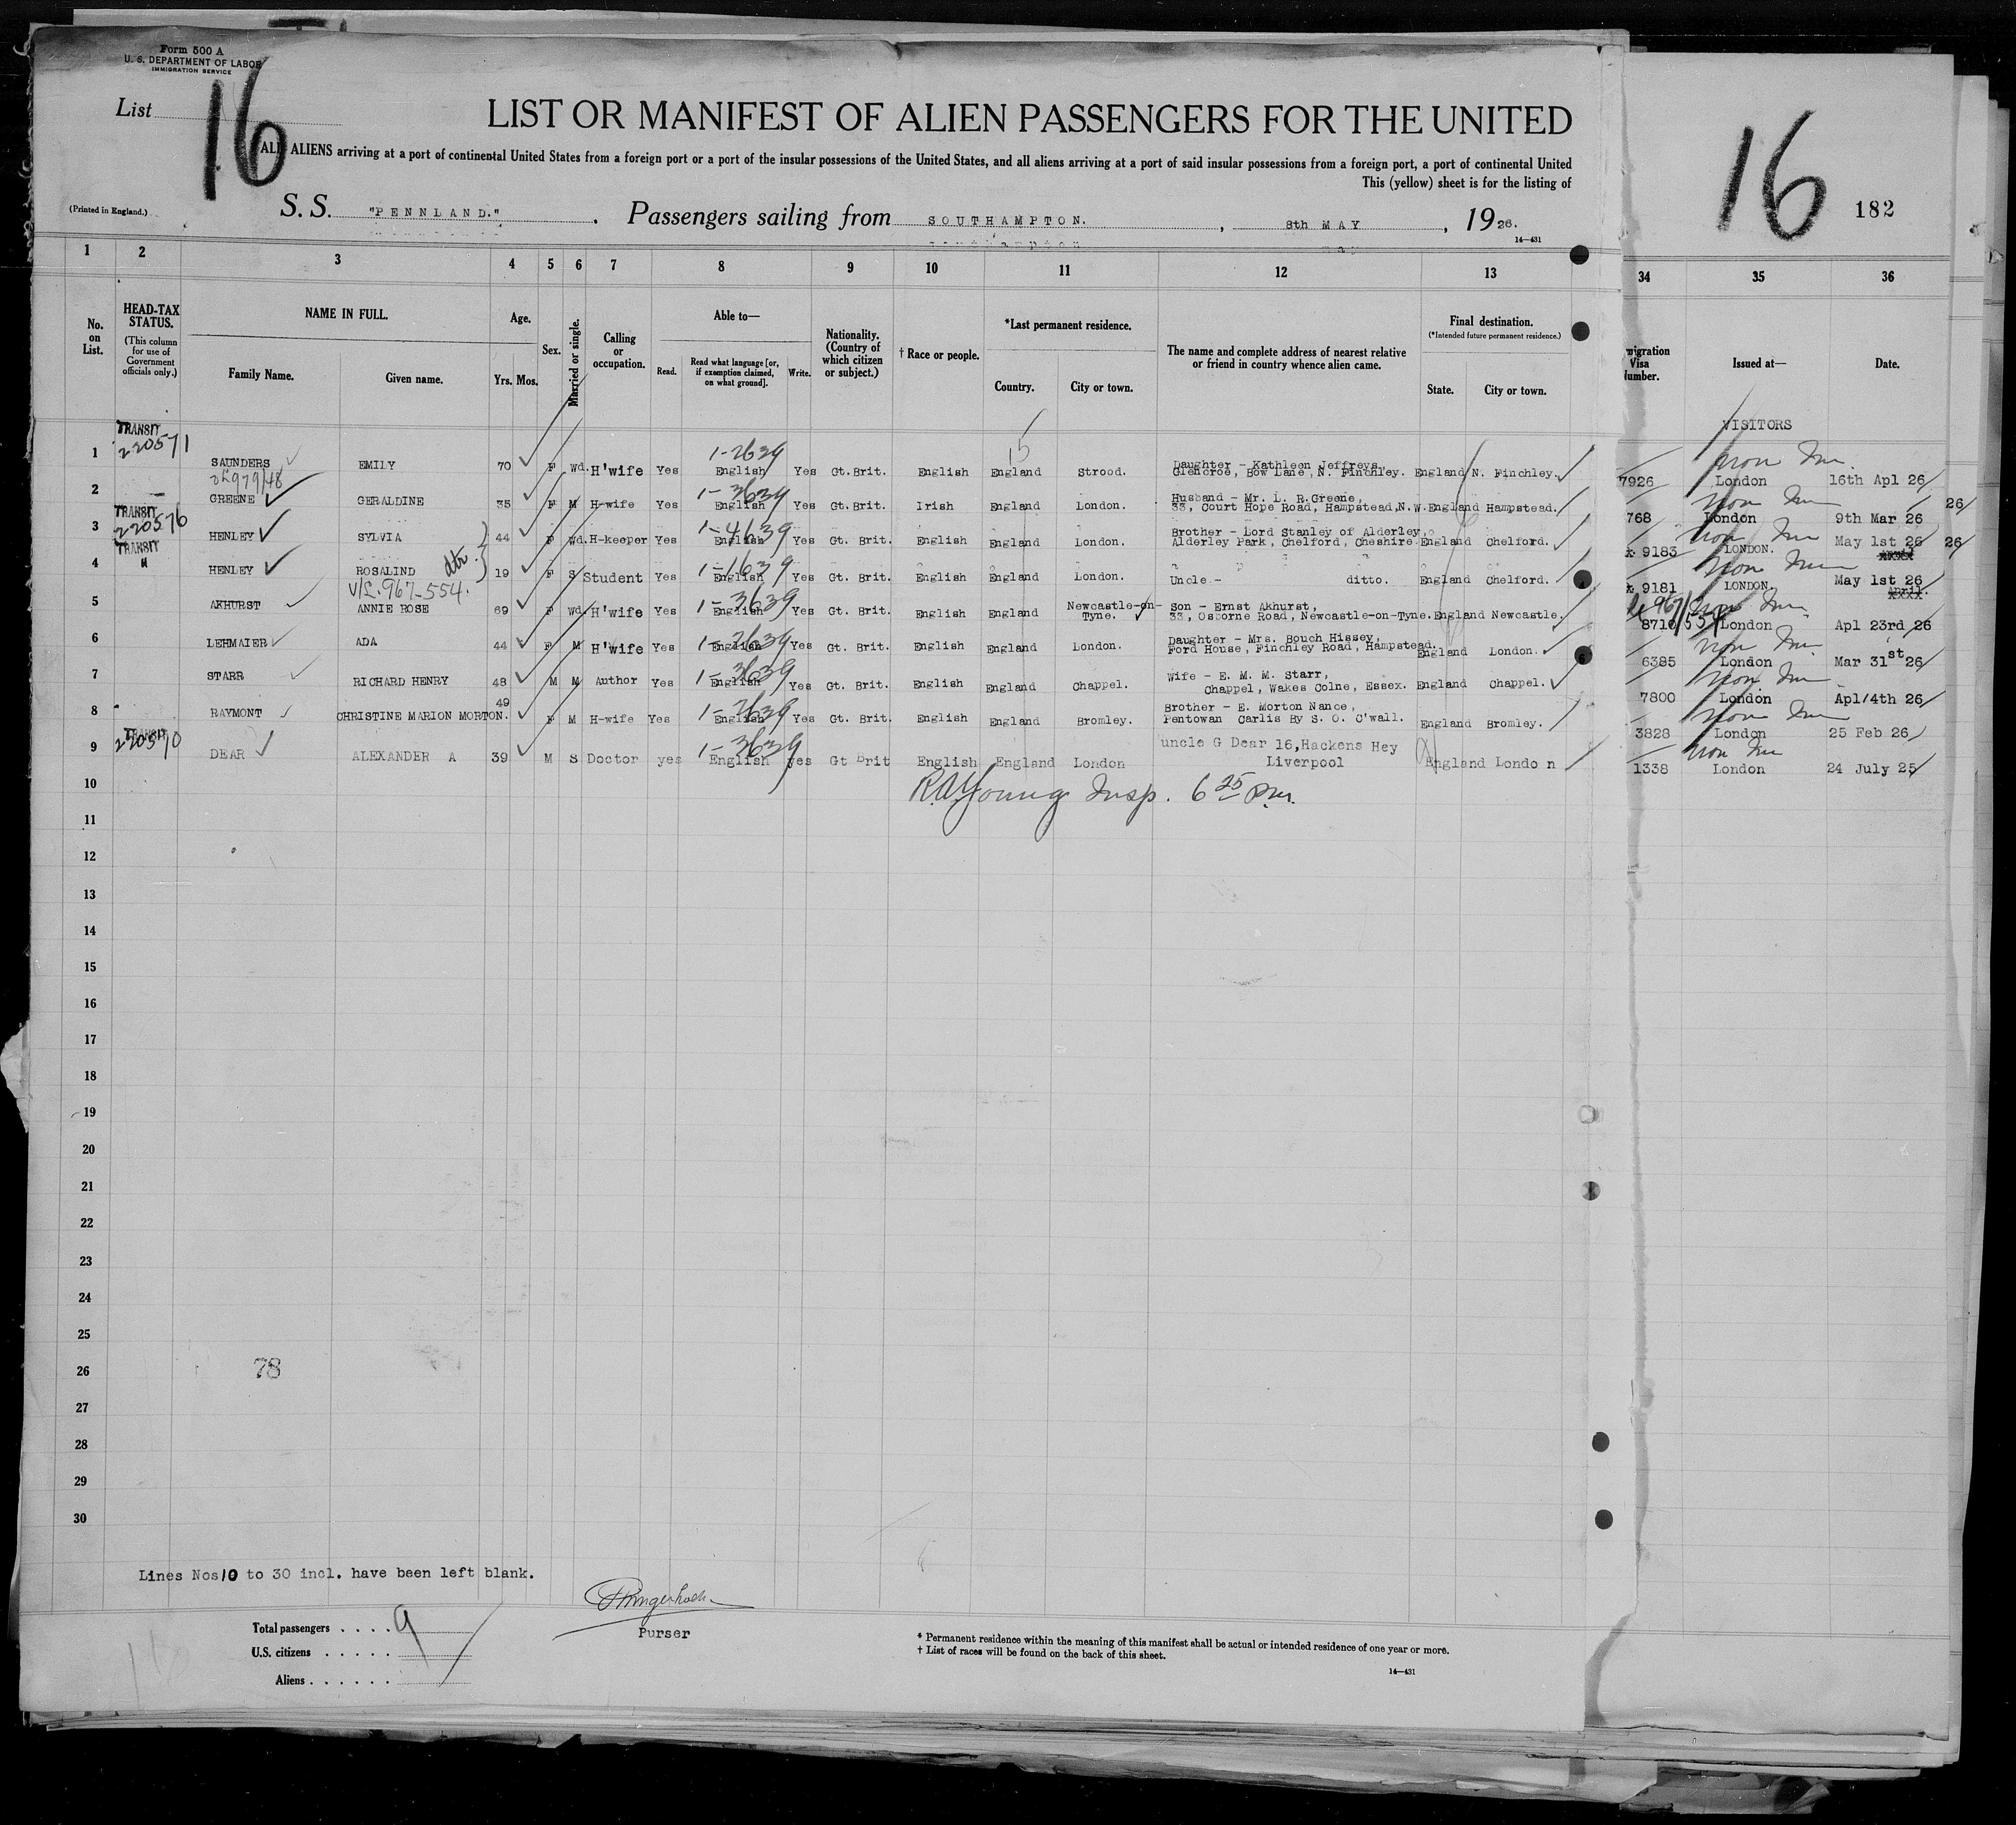 Form 500 A
U. S. DEPARTMENT OF LABOR
IMMIGRATION SERVICE
List 16
LIST OR MANIFEST OF ALIEN PASSENGERS FOR THE UNITED
ALL ALIENS arriving at a port of continental United States from a foreign port or a port of the insular possessions of the United States, and all aliens arriving at a port of said insular possessions from a foreign port, a port of continental United
This (yellow) sheet is for the listing of
(Printed in England.)
S. S. "PENNLAND." , Passengers sailing from SOUTHAMPTON. , 8th MAY , 1926.
14—431
16
182
1 2 3 4 5 6 7 8 9 10 11 12 13 34 35 36
No. on List.
HEAD-TAX STATUS.
(This column for use of Government officials only.)
NAME IN FULL.
Family Name. Given name.
Age.
Yrs. Mos.
Sex.
Married or single.
Calling or occupation.
Able to—
Read. Read what language [or, if exemption claimed, on what ground]. Write.
Nationality. (Country of which citizen or subject.)
† Race or people.
*Last permanent residence.
Country. City or town.
The name and complete address of nearest relative or friend in country whence alien came.
Final destination.
(*Intended future permanent residence.)
State. City or town.
migration Visa Number.
Issued at—
Date.
VISITORS
TRANSIT
220571
1 SAUNDERS EMILY 70 F Wd. H'wife Yes 1-2639 English Yes Gt.Brit. English England Strood. Daughter - Kathleen Jeffreys, Glencroe, Bow Lane, N. Finchley. England N. Finchley. 7926 London 16th Apl 26
979/48
2 GREENE GERALDINE 35 F M H-wife Yes 1-3639 English Yes Gt.Brit. Irish England London. Husband - Mr. L. R.Greene, 33, Court Hope Road, Hampstead,N.W. England Hampstead. 768 London 9th Mar 26 26
TRANSIT
220576
3 HENLEY SYLVIA 44 F Wd. H-keeper Yes 1-4639 English Yes Gt. Brit. English England London. Brother - Lord Stanley of Alderley, Alderley Park, Chelford, Cheshire England Chelford. 9183 LONDON. May 1st 26 26
TRANSIT
"
4 HENLEY ROSALIND dtr 19 F S Student Yes 1-1639 English Yes Gt. Brit. English England London. Uncle - ditto. England Chelford. 9181 LONDON. May 1st 26
V/L.967-554.
5 AKHURST ANNIE ROSE 69 F Wd. H'wife Yes 1-3639 English Yes Gt. Brit. English England Newcastle-on-Tyne. Son - Ernst Akhurst, 33, Osborne Road, Newcastle-on-Tyne. England Newcastle. 967/554 London Apl 23rd 26
6 LEHMAIER ADA 44 F M H'wife Yes 1-2639 English Yes Gt. Brit. English England London. Daughter - Mrs. Bouch Hissey, Ford House, Finchley Road, Hampstead. England London. 6385 London Mar 31st 26
7 STARR RICHARD HENRY 48 M M Author Yes 1-3639 English Yes Gt. Brit. English England Chappel. Wife - E. M. M. Starr, Chappel, Wakes Colne, Essex. England Chappel. 7800 London Apl 14th 26
8 RAYMONT CHRISTINE MARION MORTON. 49 F M H-wife Yes 1-2639 English Yes Gt. Brit. English England Bromley. Brother - E. Morton Nance, Pentowan Carlis By S. O. C'wall. England Bromley. 3828 London 25 Feb 26
TRANSIT
220570
9 DEAR ALEXANDER A 39 M S Doctor yes 1-3639 English yes Gt Brit English England London uncle G Dear 16,Hackens Hey Liverpool England Londo n 1338 London 24 July 25
10
R.A.Young Insp. 6 25 P.m.
11
12
13
14
15
16
17
18
19
20
21
22
23
24
25
26
78
27
28
29
30
Lines Nos 10 to 30 incl. have been left blank.
Purser
Total passengers . . . . 9
U.S. citizens . . . . .
Aliens . . . . . .
* Permanent residence within the meaning of this manifest shall be actual or intended residence of one year or more.
† List of races will be found on the back of this sheet.
14—431